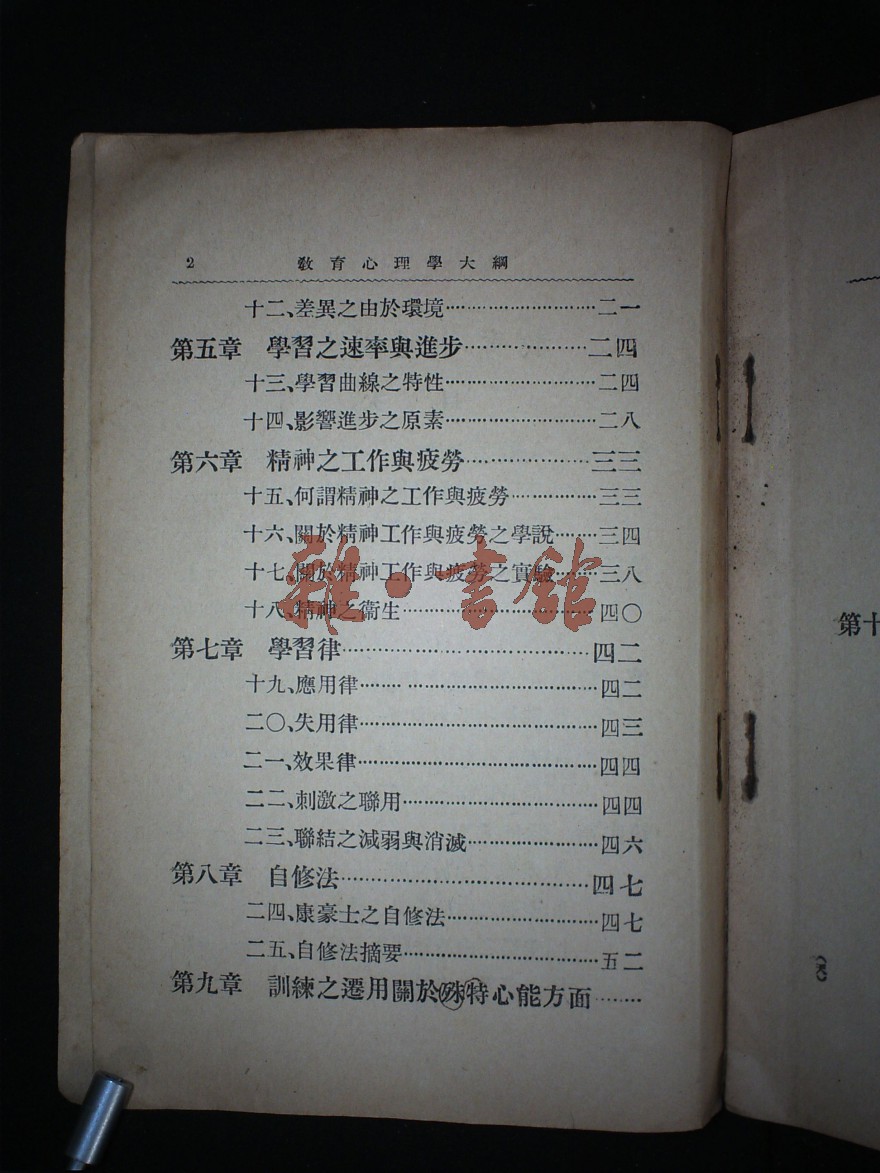 2 教育心理學大綱
十二、差異之由於環境……………………二一
第五章 學習之速率與進步………………二四
十三、學習曲線之特性……………………二四
十四、影響進步之原素……………………二八
第六章 精神之工作與疲勞………………三三
十五、何謂精神之工作與疲勞……………三三
十六、關於精神工作與疲勞之學說………三四
十七、關於精神工作與疲勞之實驗………三八
十八、精神之衞生…………………………四〇
第七章 學習律……………………………四二
十九、應用律………………………………四二
二〇、失用律………………………………四三
二一、效果律………………………………四四
二二、刺激之聯用…………………………四四
二三、聯結之減弱與消滅…………………四六
第八章 自修法……………………………四七
二四、康豪士之自修法……………………四七
二五、自修法摘要…………………………五二
第九章 訓練之遷用關於殊特心能方面……
第十
雜·書館